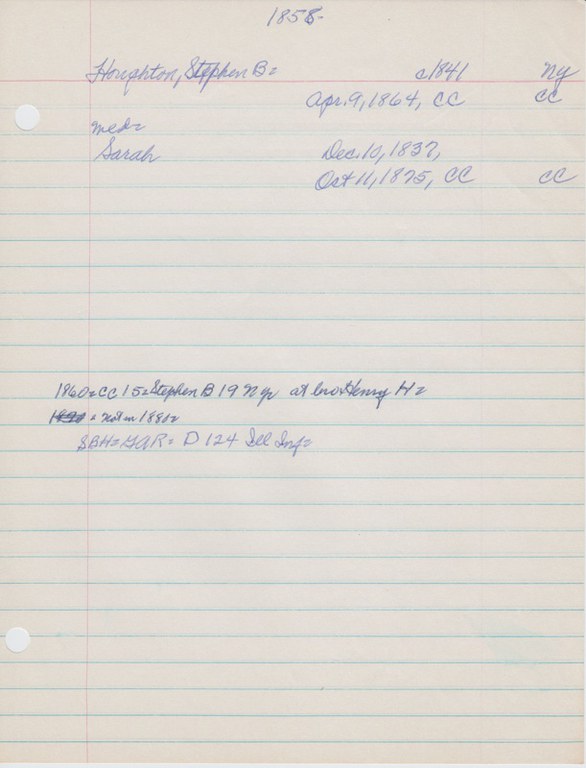 1858-
Houghton, Stephen B= c1841 Ny
Apr. 9, 1864, CC CC
med=
Sarah Dec. 10, 1837,
Oct 11, 1875, CC CC
1860=CC 15=Stephen B 19 Ny at bro Henry H=
= Not in 1880=
SBH=GAR= D 124 Ill Inf=